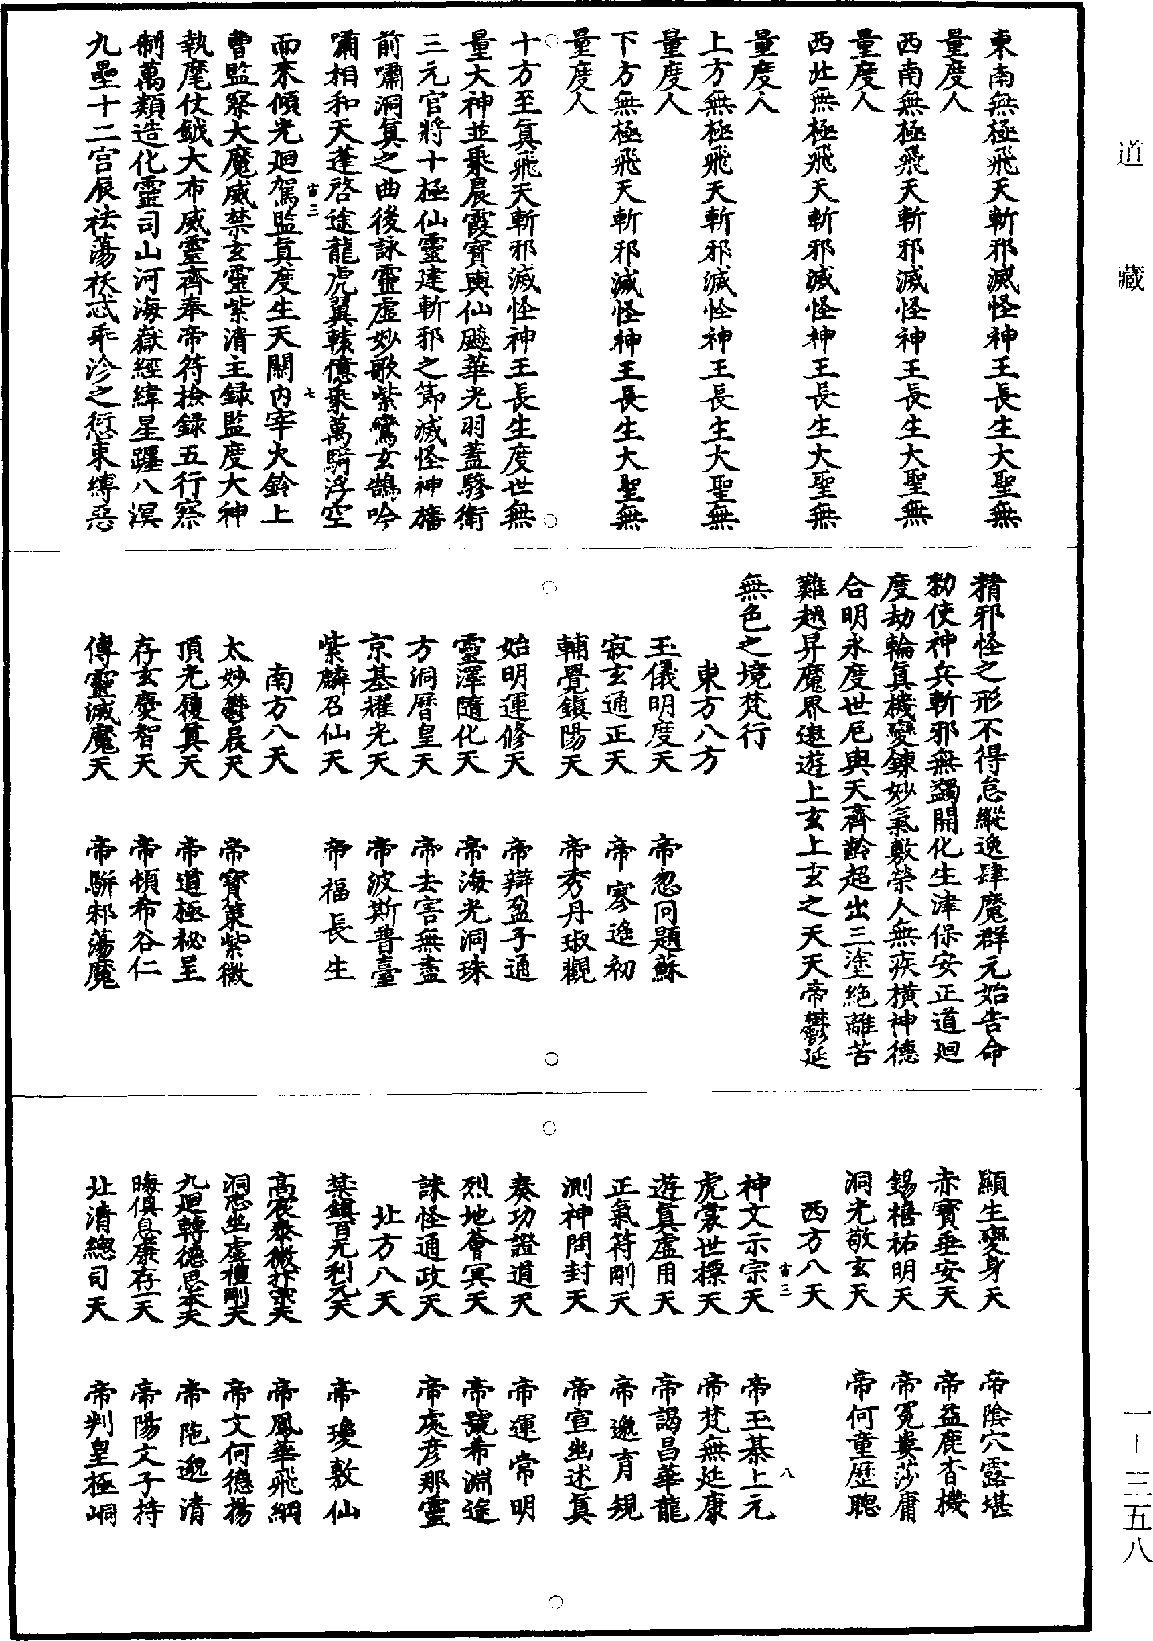 東南無極飛天斬邪滅怪神王長生大聖無
量度人
西南無極飛天斬邪滅怪神王長生大聖無
量度人
西北無極飛天斬邪滅怪神王長生大聖無
量度人
上方無極飛天斬邪滅怪神王長生大聖無
量度人
下方無極飛天斬邪滅怪神王長生大聖無
量度人
十方至真飛天斬邪滅怪神王長生度世無
量大神並乘晨霞寶輿仙飈華光羽蓋驂衛
三元官將十極仙靈建斬邪之節滅怪神旛
前嘯洞真之曲後詠靈虛妙歌紫鸞玄鵠吟
嘯相和天蓬啓途龍虎翼轅億乘萬騎浮空
而來傾光廻駕監真度生天關內宰火鈴上
曹監察大魔威禁玄靈紫清主録監度大神
執麾仗鉞大布威靈齊奉帝符檢録五行察
制萬類造化靈司山河海嶽經緯星躔八溟
九壘十二宮辰祛蕩袄忒乖沴之愆束縛惡
精邪怪之形不得怠縱逸肆魔群元始告命
勑使神兵斬邪無蠲開化生津保安正道廻
度劫輪真機變鍊妙氣敷榮人無疾橫神德
合明永度世厄與天齊齡超出三塗絶離苦
難越昇魔界遨遊上玄上玄之天天帝鬱延
無色之境梵行
東方八方
玉儀明度天 帝忽问題蘇
寂玄通正天 帝寥遙初
輔覺鎮陽天 帝秀丹琡觀
始明運修天 帝辯盈子通
靈澤隨化天 帝海光洞珠
方洞曆皇天 帝去害無盡
京基耀光天 帝波斯普臺
紫麟召仙天 帝福長生
南方八天
太妙鬱晨天 帝寶策紫微
頂光履真天 帝道極祕呈
存玄奭智天 帝頓希谷仁
傳靈滅魔天 帝駢邾蕩魔
顯生變身天 帝陰穴露堪
赤寶垂安天 帝益鹿杳機
錫禧祐明天 帝冕婁莎庸
洞光敬玄天 帝何童歷聰
西方八天
神文示宗天 帝玉綦上元
虎裳世標天 帝梵無延康
遊真虛用天 帝謁昌華龍
正氣符剛天 帝邈育規
測神問封天 帝宣幽述真
奏功證道天 帝運常明
烈地薈冥天 帝號希淵途
誅怪通政天 帝處彥那靈
北方八天
禁鎮百元利元天 帝瓊敷仙
高夜泰微 天 帝鳳華飛綱
洞 幽虛檀剛天 帝文何德揚
九廻轉德恩本天 帝陁邈清
晦俱息康存天 帝陽文子持
北清總司天 帝判皇極峒
吉三
七
吉三
八
道藏
一-三五八